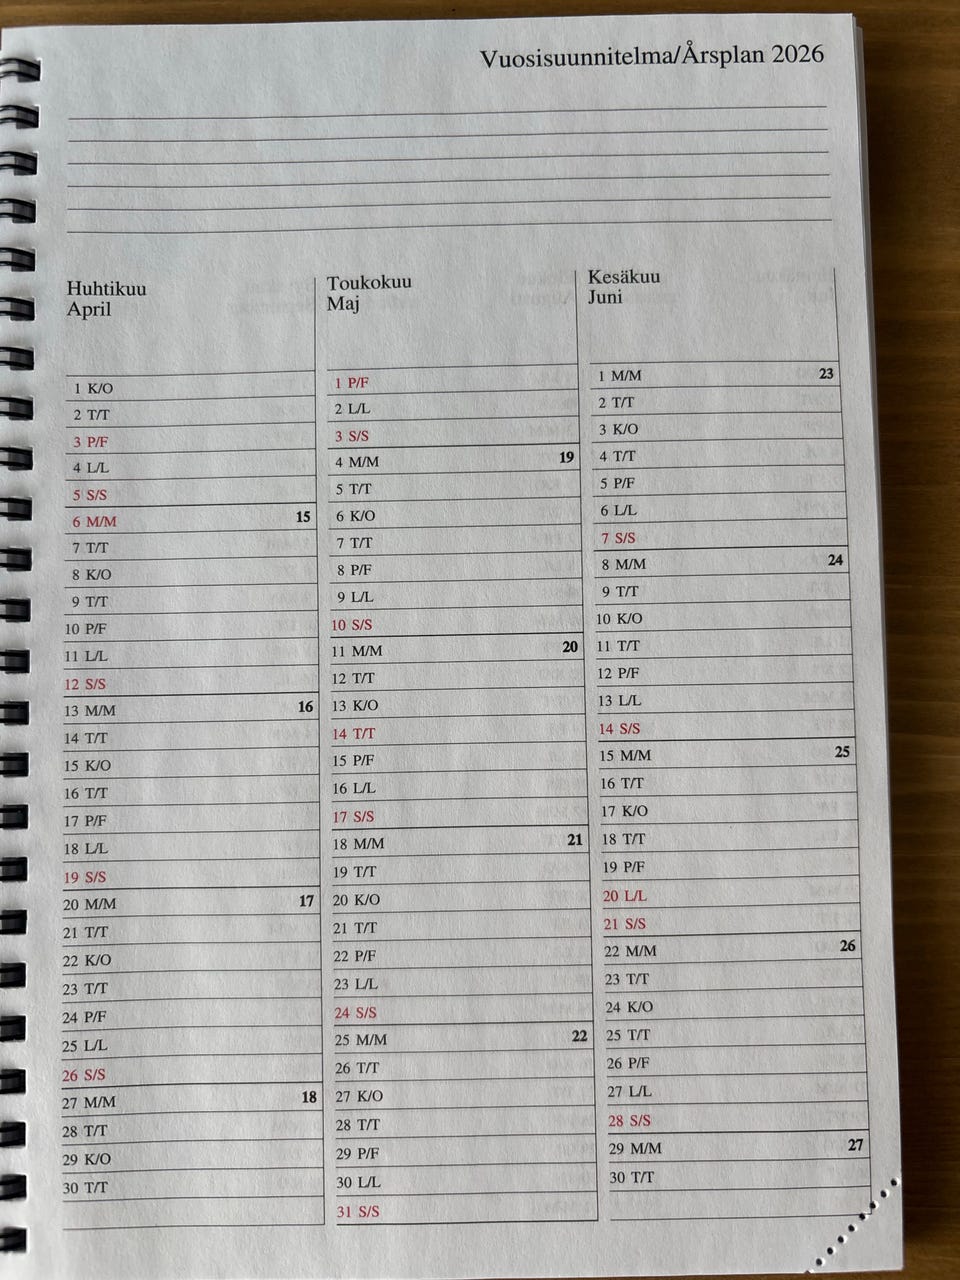 Vuosisuunnitelma/Årsplan 2026
Huhtikuu
April
1 K/O
2 T/T
3 P/F
4 L/L
5 S/S
6 M/M 15
7 T/T
8 K/O
9 T/T
10 P/F
11 L/L
12 S/S
13 M/M 16
14 T/T
15 K/O
16 T/T
17 P/F
18 L/L
19 S/S
20 M/M 17
21 T/T
22 K/O
23 T/T
24 P/F
25 L/L
26 S/S
27 M/M 18
28 T/T
29 K/O
30 T/T
Toukokuu
Maj
1 P/F
2 L/L
3 S/S
4 M/M 19
5 T/T
6 K/O
7 T/T
8 P/F
9 L/L
10 S/S
11 M/M 20
12 T/T
13 K/O
14 T/T
15 P/F
16 L/L
17 S/S
18 M/M 21
19 T/T
20 K/O
21 T/T
22 P/F
23 L/L
24 S/S
25 M/M 22
26 T/T
27 K/O
28 T/T
29 P/F
30 L/L
31 S/S
Kesäkuu
Juni
1 M/M 23
2 T/T
3 K/O
4 T/T
5 P/F
6 L/L
7 S/S
8 M/M 24
9 T/T
10 K/O
11 T/T
12 P/F
13 L/L
14 S/S
15 M/M 25
16 T/T
17 K/O
18 T/T
19 P/F
20 L/L
21 S/S
22 M/M 26
23 T/T
24 K/O
25 T/T
26 P/F
27 L/L
28 S/S
29 M/M 27
30 T/T